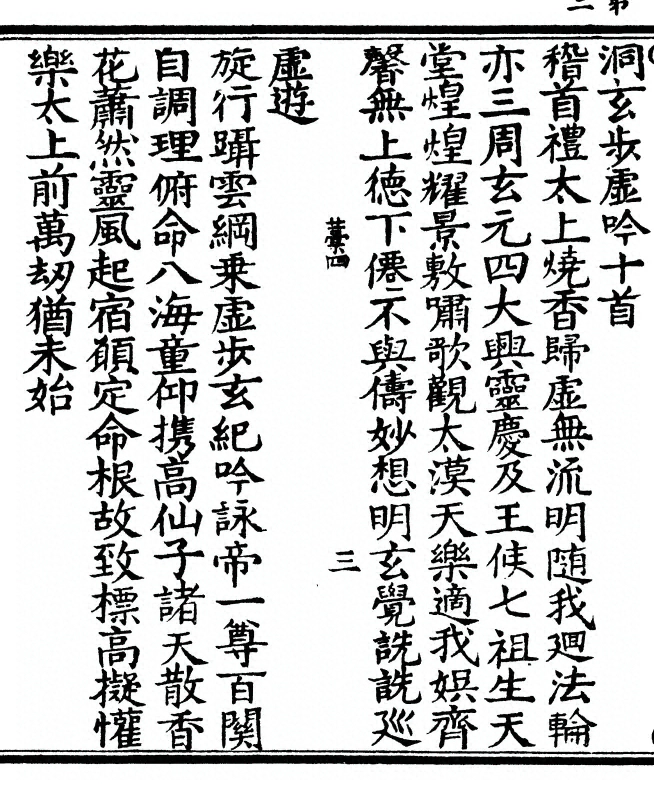 洞玄步虛吟十首
稽首禮太上燒香歸虛無流明随我𢌞法輪
亦三周玄元四大興靈慶及王侯七祖生天
堂煌煌耀景敷嘯歌觀太漠天樂適我娯齊
馨無上德下僊不與儔妙想明玄覺詵詵巡
虛遊
旋行躡雲綱乗虛步玄紀吟詠帝一尊百関
自調理俯命八海童仰携高仙子諸天散香
花蕭然靈風起宿願定命根故致標高擬懽
樂太上前萬刼猶未始
三